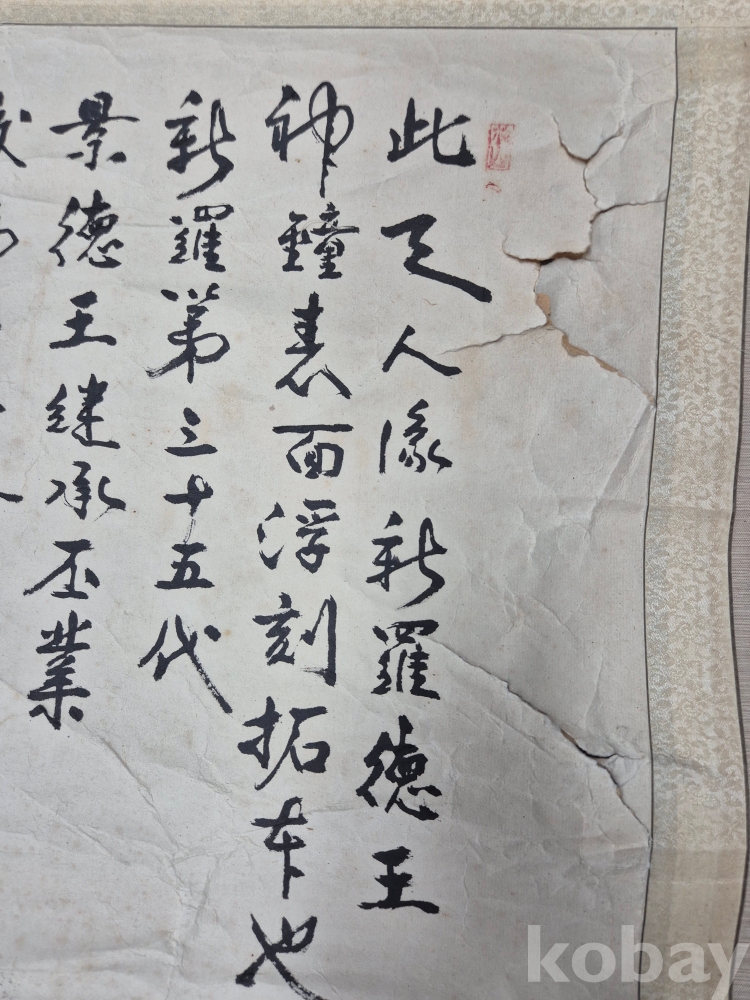 此天人像新羅德王
神鐘表面浮刻拓本也
新羅第三十五代
景德王継承丕業
kobay